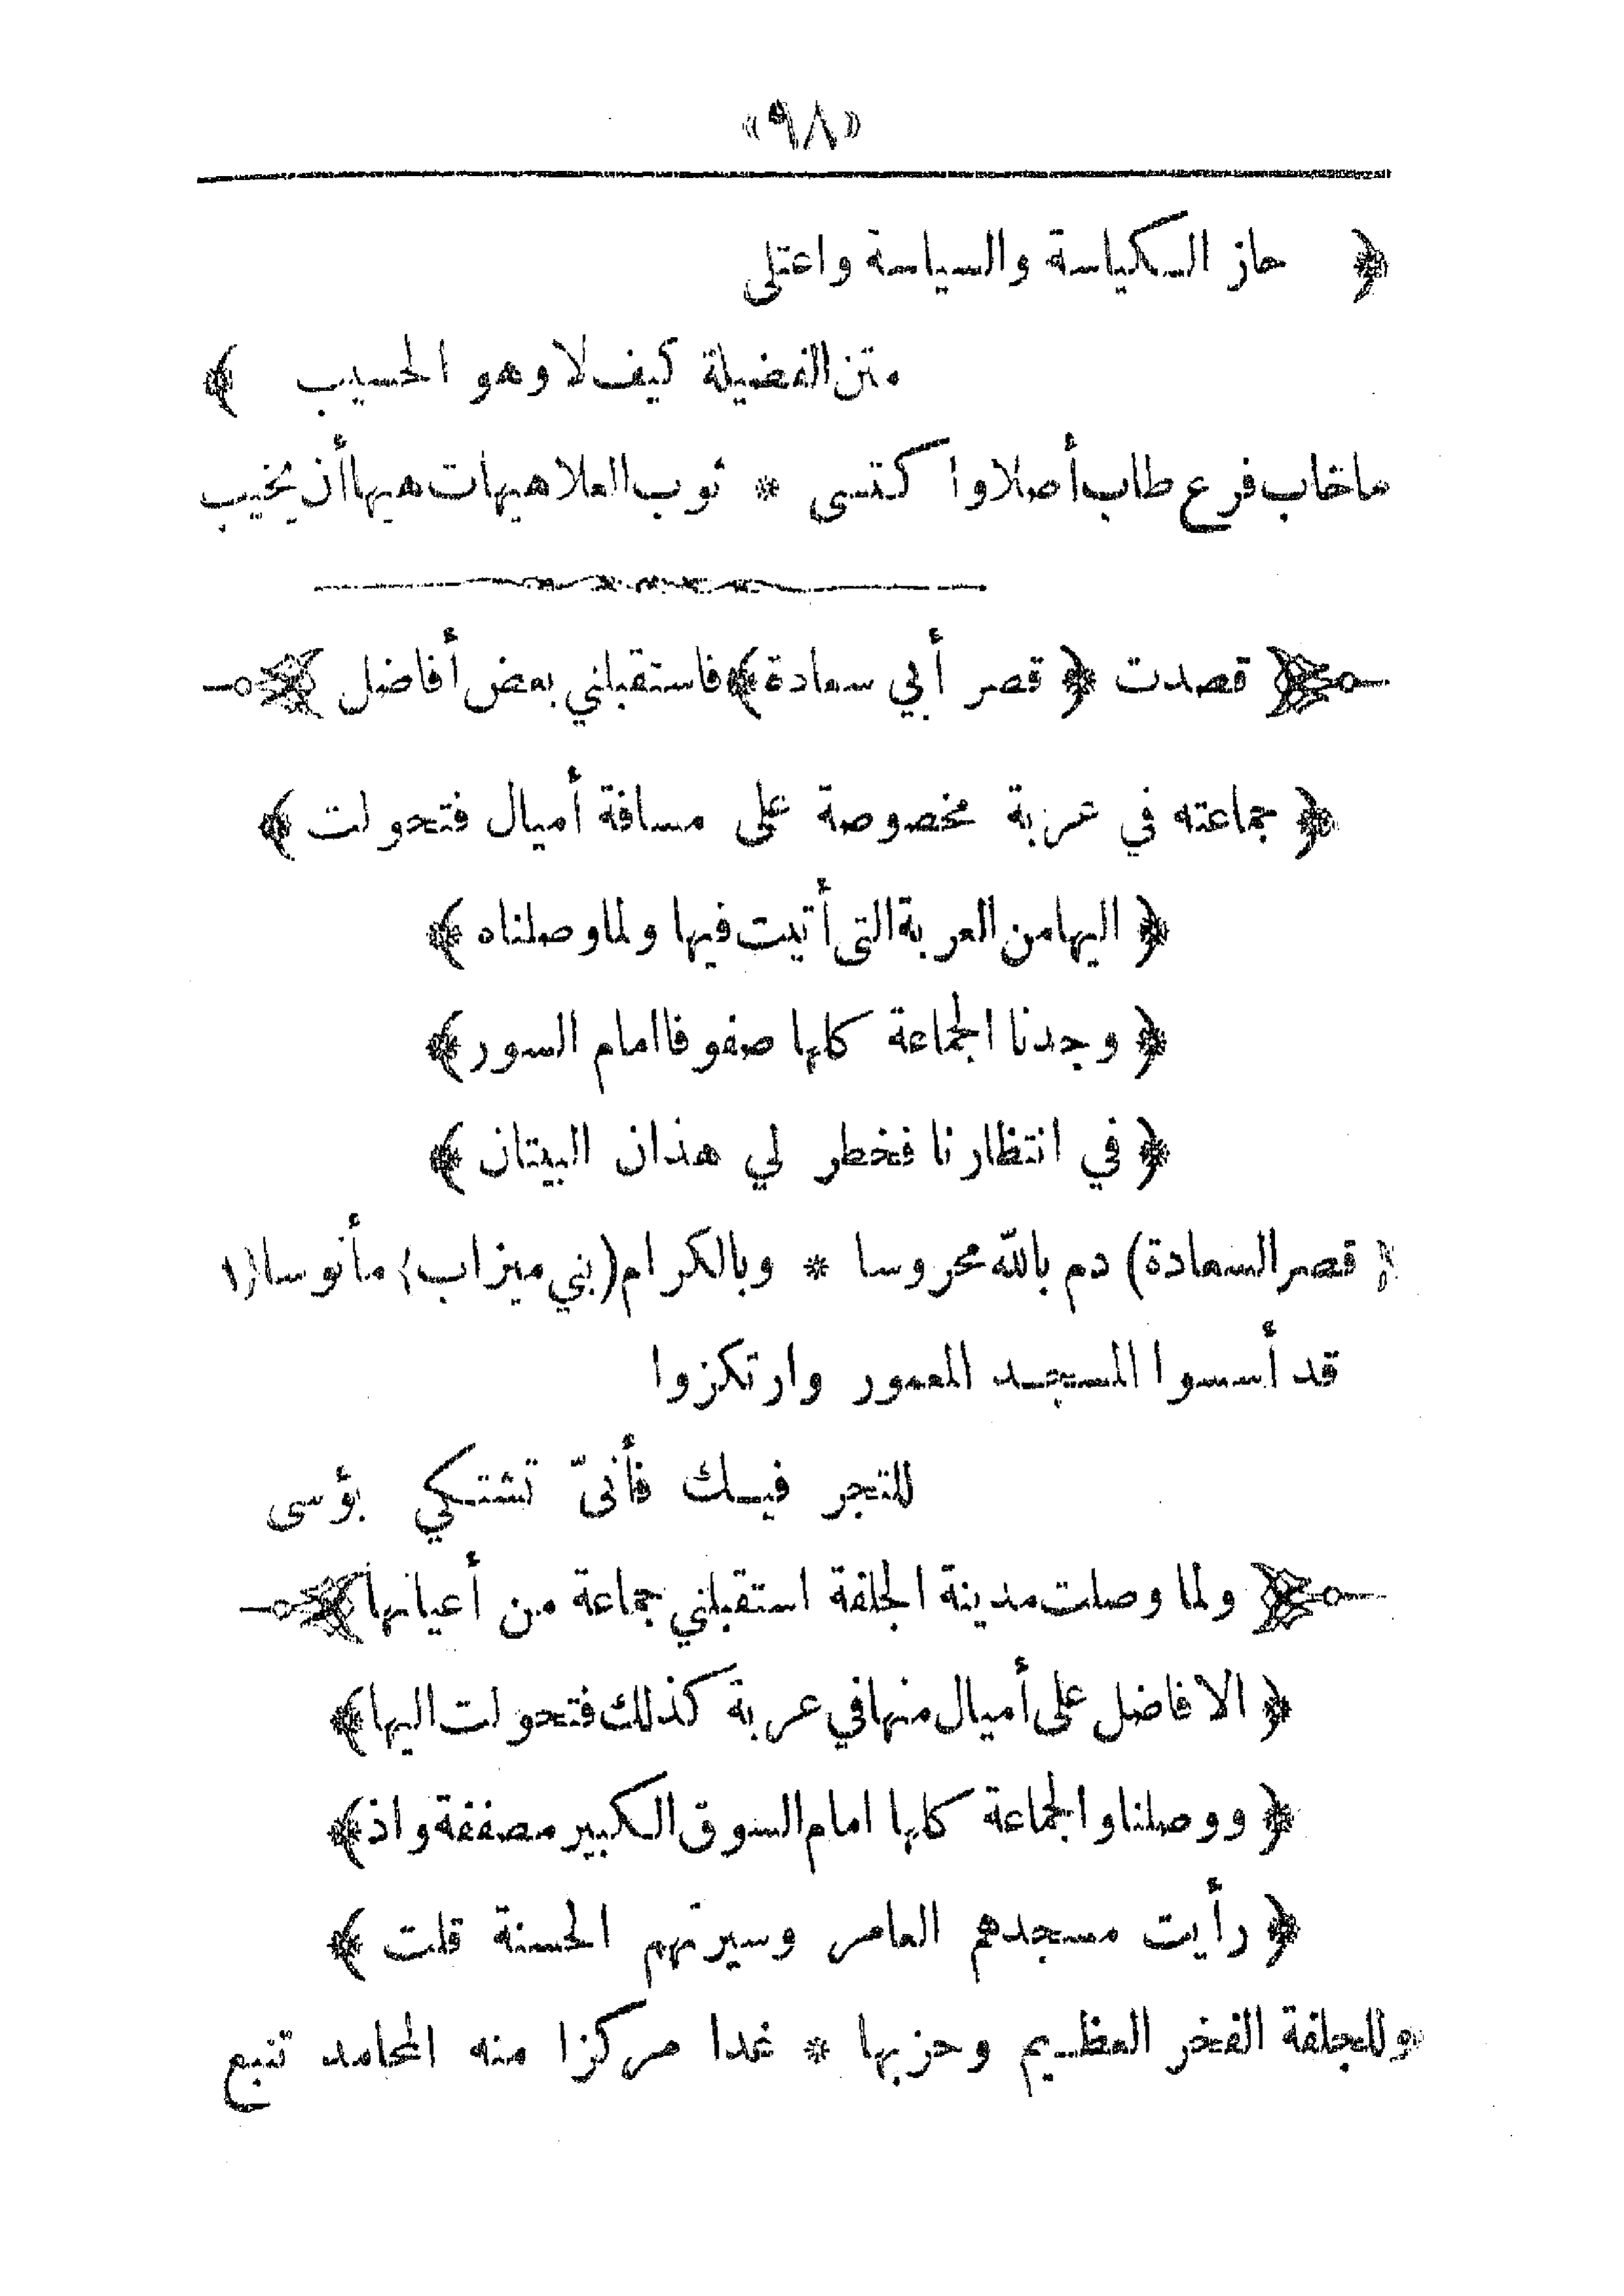 «٩٨»
﴿ حاز الكياسة والسياسة واعتلى
متن الفضيلة كيف لا وهو الحسيب ﴾
ماخاب فرع طاب أصلا واكتسى * ثوب العلا هيهات هيها أن يخيب
﴿ قصدت ﴿ قصر أبي سعادة ﴾ فاستقبلني بعض أفاضل ﴾
﴿ جماعته في عربة مخصوصة على مسافة أميال فتحولت ﴾
﴿ اليها من العربة التى أتيت فيها ولما وصلناه ﴾
﴿ وجدنا الجماعة كلها صفوفا امام السور ﴾
﴿ في انتظارنا فخطر لي هذان البيتان ﴾
( قصر السعادة) دم بالله محروسا * وبالكرام (بني ميزاب) مأنوسا (١
قد أسسوا المسجد المعمور وارتكزوا
للتجر فيك فأنىّ تشتكي بؤسى
﴿ ولما وصلت مدينة الجلفة استقبلني جماعة من أعيانها ﴾
﴿ الافاضل على أميال منها في عربة كذلك فتحولت اليها ﴾
﴿ ووصلنا والجماعة كلها امام السوق الكبير مصففة واذ ﴾
﴿ رأيت مسجدهم العامر وسيرتهم الحسنة قلت ﴾
وللجلفة الفخر العظيم وحزبها * غدا مركزا منه المحامد تنبع